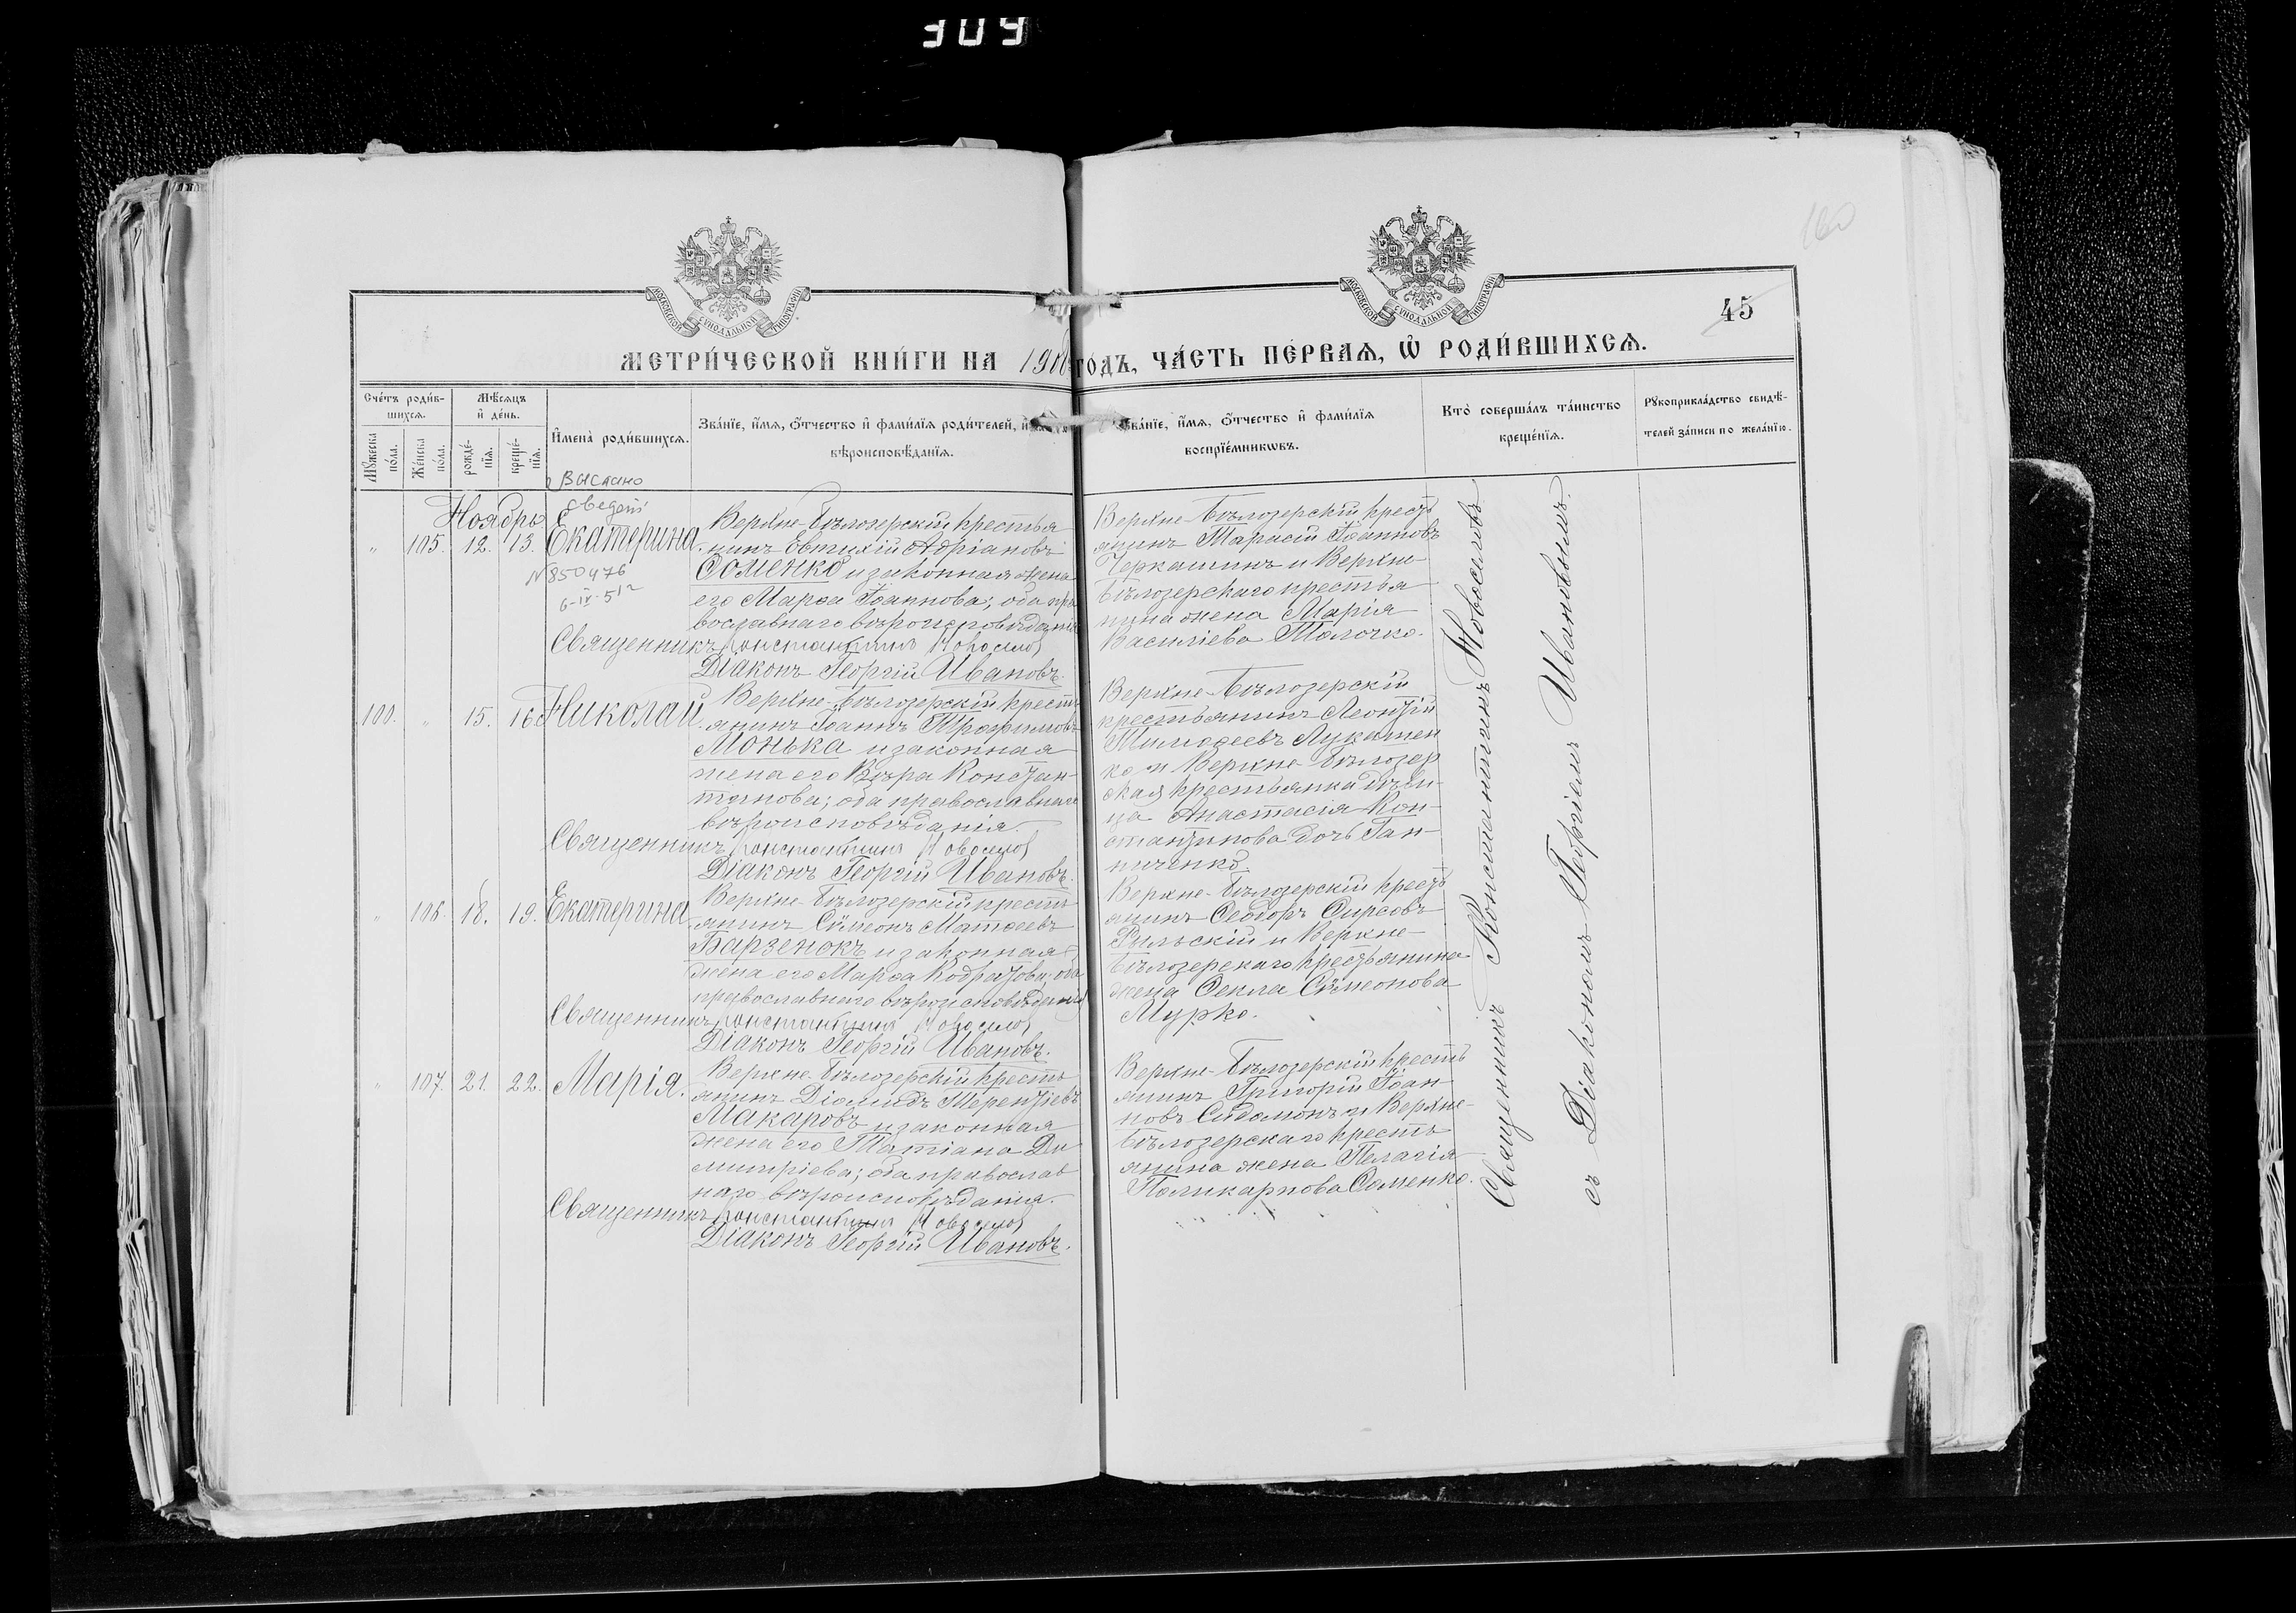 309
160
45
МОСКОВСКОЙ СѴНОДАЛЬНОЙ ТИПОГРАФІИ
МОСКОВСКОЙ СѴНОДАЛЬНОЙ ТИПОГРАФІИ
МЕТРИ́ЧЕСКОЙ КНИ́ГИ НА 190 ГО́ДЪ, ЧА́СТЬ ПЕ́РВАЯ, Ѡ҆ РОДИ́ВШИХСѦ.
Сче́тъ роди́в-
шихсѧ.
Мꙋжеска по́ла.
Же́нска по́ла.
Мѣ́сѧцъ
и҆ де́нь.
рожде́-
нїѧ.
креще́-
нїѧ.
И҆мена̀ роди́вшихсѧ.
Зва́нїе, и҆́мѧ, ѻ҆́тчество и҆ фами́лїѧ роди́телей, и҆
вѣроисповѣ́данїѧ.
Зва́нїе, и҆́мѧ, ѻ҆́тчество и҆ фами́лїѧ
воспрїе́мникѡвъ.
Кто̀ соверша́лъ та́инство
креще́нїѧ.
Рꙋкоприкла́дство свидѣ́-
телей за́писи по жела́нїю.
Выслано
Ноябрь
„ 105. 12. 13. Екатерина.
№850476
6-IV-51г
Верхне-Бѣлозерскій крестья
нинъ Евтихій Адріановъ
Соменко и законная жена
его Марѳа Іоаннова; оба пра
вославнаго вѣроисповѣданія
Священникъ Константинъ Новоселов
Діаконъ Георгій Ивановъ.
Верхне-Бѣлозерскій кресть
янинъ Тарасій Іоанновъ
Черкашинъ и Верхне-
Бѣлозерскаго крестья
нина жена Марія
Василіева Толочко.
100. „ 15. 16. Николай.
Верхне-Бѣлозерскій кресть
янинъ Іоаннъ Трофимовъ
Монька и законная
жена его Вѣра Констан-
тинова; оба православнаго
вѣроисповѣданія.
Священникъ Константинъ Новоселов
Діаконъ Георгій Ивановъ.
Верхне-Бѣлозерскій
крестьянинъ Леонтій
Тимоѳеевъ Лукашен
ко и Верхне-Бѣлозер
ская крестьянка дѣви-
ца Анастасія Кон-
стантинова дочь Ган-
ниченко.
„ 106. 18. 19. Екатерина.
Верхне-Бѣлозерскій кресть
янинъ Сѵмеонъ Матѳеевъ
Барзенокъ и законная
жена его Марѳа Кодратова; оба
православнаго вѣроисповѣданія
Священникъ Константинъ Новоселов
Діаконъ Георгій Ивановъ.
Верхне-Бѣлозерскій кресть
янинъ Ѳеодоръ Ѳирсовъ
Рыльскій и Верхне-
Бѣлозерскаго крестьянина
жена Ѳекла Сѵмеонова
Мурко.
„ 107. 21. 22. Марія.
Верхне-Бѣлозерскій кресть
янинъ Діомидъ Терентіевъ
Макаровъ и законная
жена его Татіана Ди
митріева; оба православ
наго вѣроисповѣданія.
Священникъ Константинъ Новоселов
Діаконъ Георгій Ивановъ.
Верхне-Бѣлозерскій кресть
янинъ Григорій Іоан-
новъ Сидамонъ и Верхне-
Бѣлозерскаго кресть
янина жена Пелагія
Поликарпова Соменко.
Священникъ Константинъ Новоселовъ
съ Діакономъ Георгіемъ Ивановымъ.